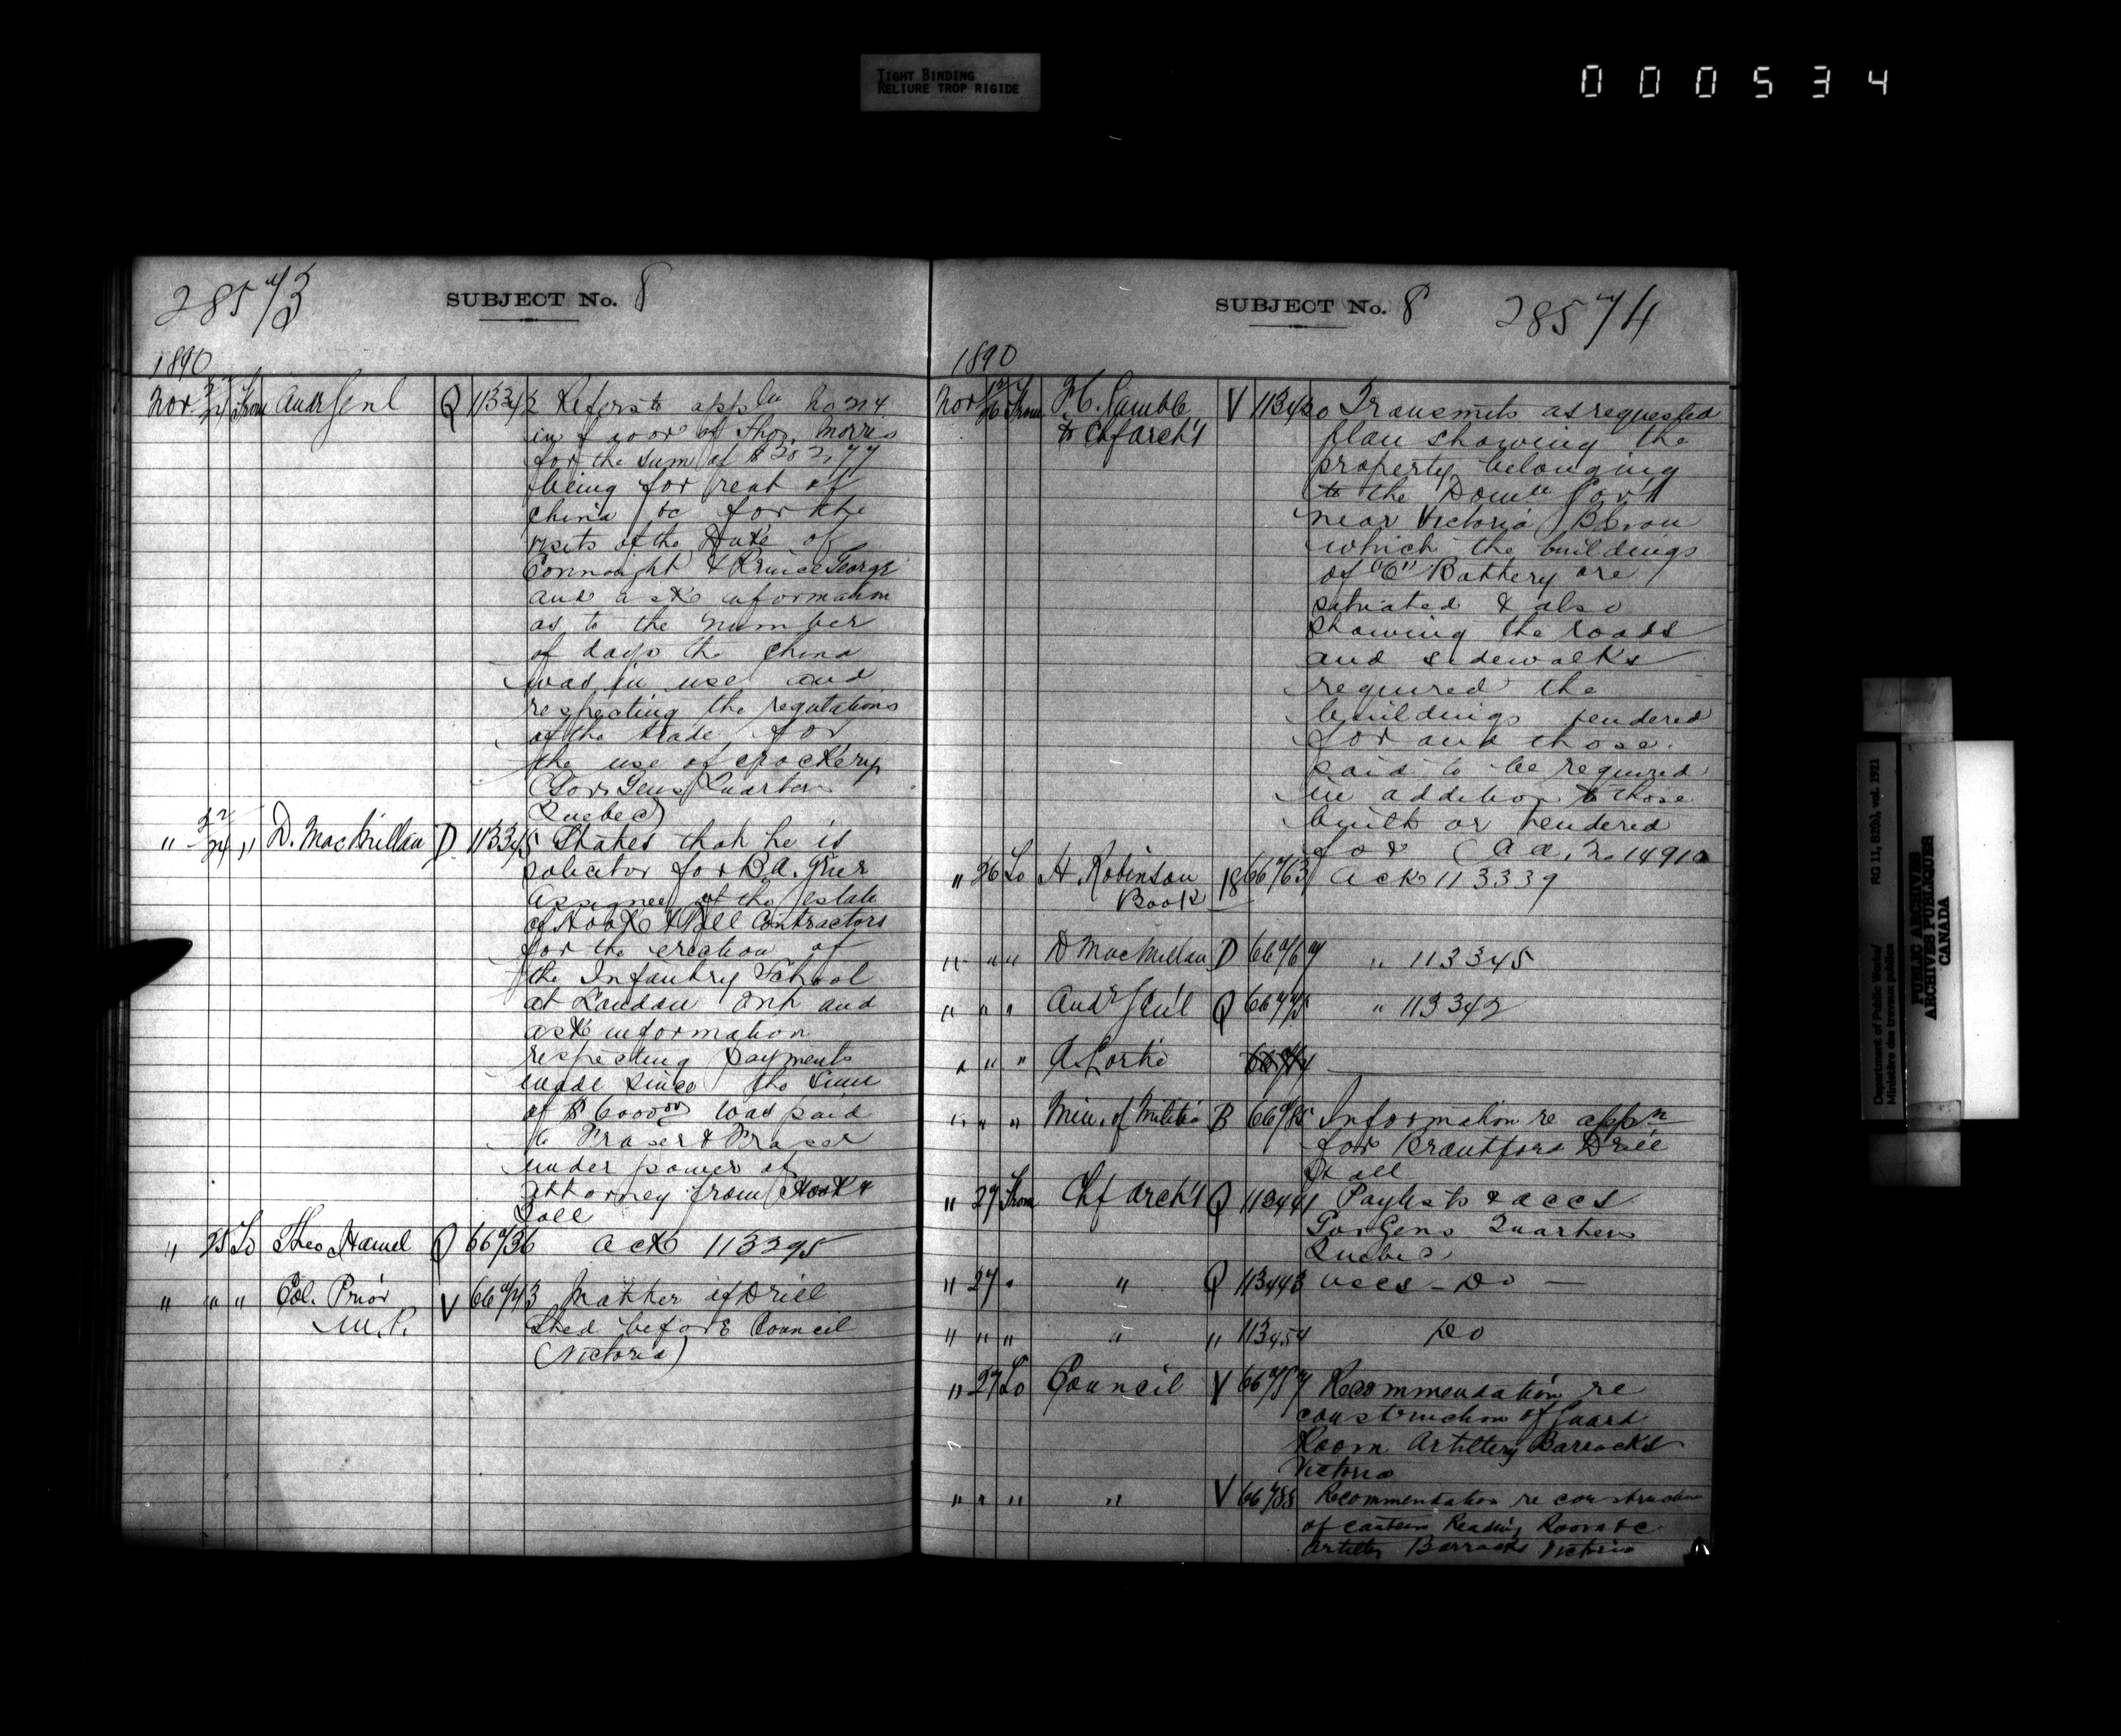 TIGHT BINDING
RELIURE TROP RIGIDE
000534
SUBJECT No. 8
1890
Nov 24 From Audr Genl Q 113342 Refers to appln No
in favor of Thos. Morris
for the sum of $
being for rent of
china &c for the
visits of the Duke of
Connaught & Prince George
and ask information
as to the number
of days the china
was in use and
respecting the regulations
of the trade for
the use of crockery
(Gov Gens Quarters
Quebec)
" 24 " D. MacMillan D 113345 States that he is
solicitor for
Assignee of the estate
of Hook & Toll Contractors
for the erection of
the Infantry School
at London Ont and
ask information
respecting payments
made since the sum
of $6000.00 was paid
to Fraser & Fraser
under power of
attorney from Hook &
Toll
" 25 To Theo Hamel Q Ack
" " " Col. Prior V Matter of Drill
M.P. Shed before Council
(Victoria)
SUBJECT No. 8
1890
Nov 26 From F.C. Gamble V 113420 Transmits as requested
to Chf Arch't plan showing the
property belonging
to the Domn Gov't
near Victoria BC on
which the buildings
of "C" Battery are
situated & also
showing the roads
and sidewalks
required the
buildings tendered
for and those
said to be required
in addition to those
built or tendered
for
" 26 To H. Robinson 18 Ack 113339
Book
" " " D MacMillan D " 113345
" " " Audr Gen'l Q " 113342
" " "
" " " Min. of Militia B Information re appn
for Brantford Drill
Hall
" 27 From Chf Arch't Q 113441 Paylists & accs
Gov Gens Quarters
Quebec
" 27 " " Q 113443 accs - Do -
" " " " " 113454 Do
" 27 To Council V Recommendation re
construction of Guard
Room Artillery Barracks
Victoria
" " " " V Recommendation re construction
of canteen Reading Room &c
Artillery Barracks Victoria
Department of Public Works/
Ministère des travaux publics
RG 11, B2(b), vol. 1921
PUBLIC ARCHIVES
ARCHIVES PUBLIQUES
CANADA